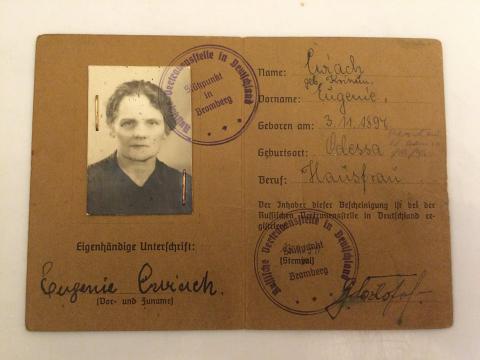 Eigenhändige Unterschrift:
Eugenie
(Vor- und Zuname)
Russische Vertrauensstelle in Deutschland
Stützpunkt
in
Bromberg
Name:
geb.
Vorname: Eugenie.
Geboren am: 3. 11. 1897
Geburtsort: Odessa
Beruf: Hausfrau
Der Inhaber dieser Bescheinigung ist bei der
Russischen Vertrauensstelle in Deutschland re-
gistriert.
Russische Vertrauensstelle in Deutschland
Stützpunkt
(Stempel)
Bromberg